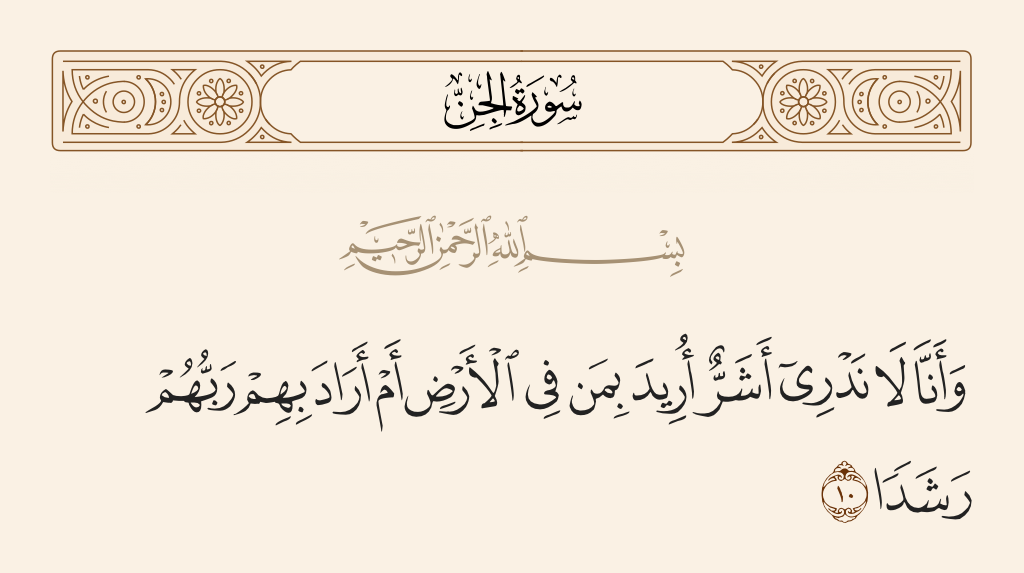 سُورَةُ الجِنِّ
بِسْمِ ٱللَّهِ ٱلرَّحْمَٰنِ ٱلرَّحِيمِ
وَأَنَّا لَا نَدْرِىٓ أَشَرٌّ أُرِيدَ بِمَن فِى ٱلْأَرْضِ أَمْ أَرَادَ بِهِمْ رَبُّهُمْ
رَشَدًا ١٠